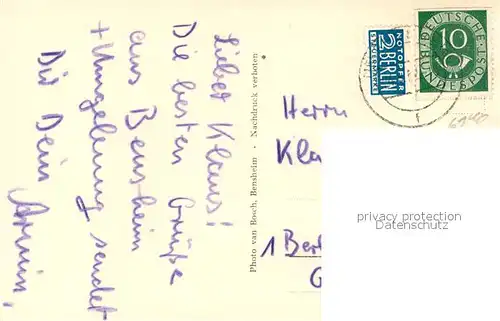 Lieber Klaus!
Die besten Grüße
aus Bensheim
+ Umgebung sendet
Dir Dein Armin,
Photo van Bosch, Bensheim - Nachdruck verboten
NOTOPFER
2 BERLIN
STEUERMARKE
DEUTSCHE
BUNDESPOST
10
f
Herrn
Kla
1 Berl
G
privacy protection
Datenschutz